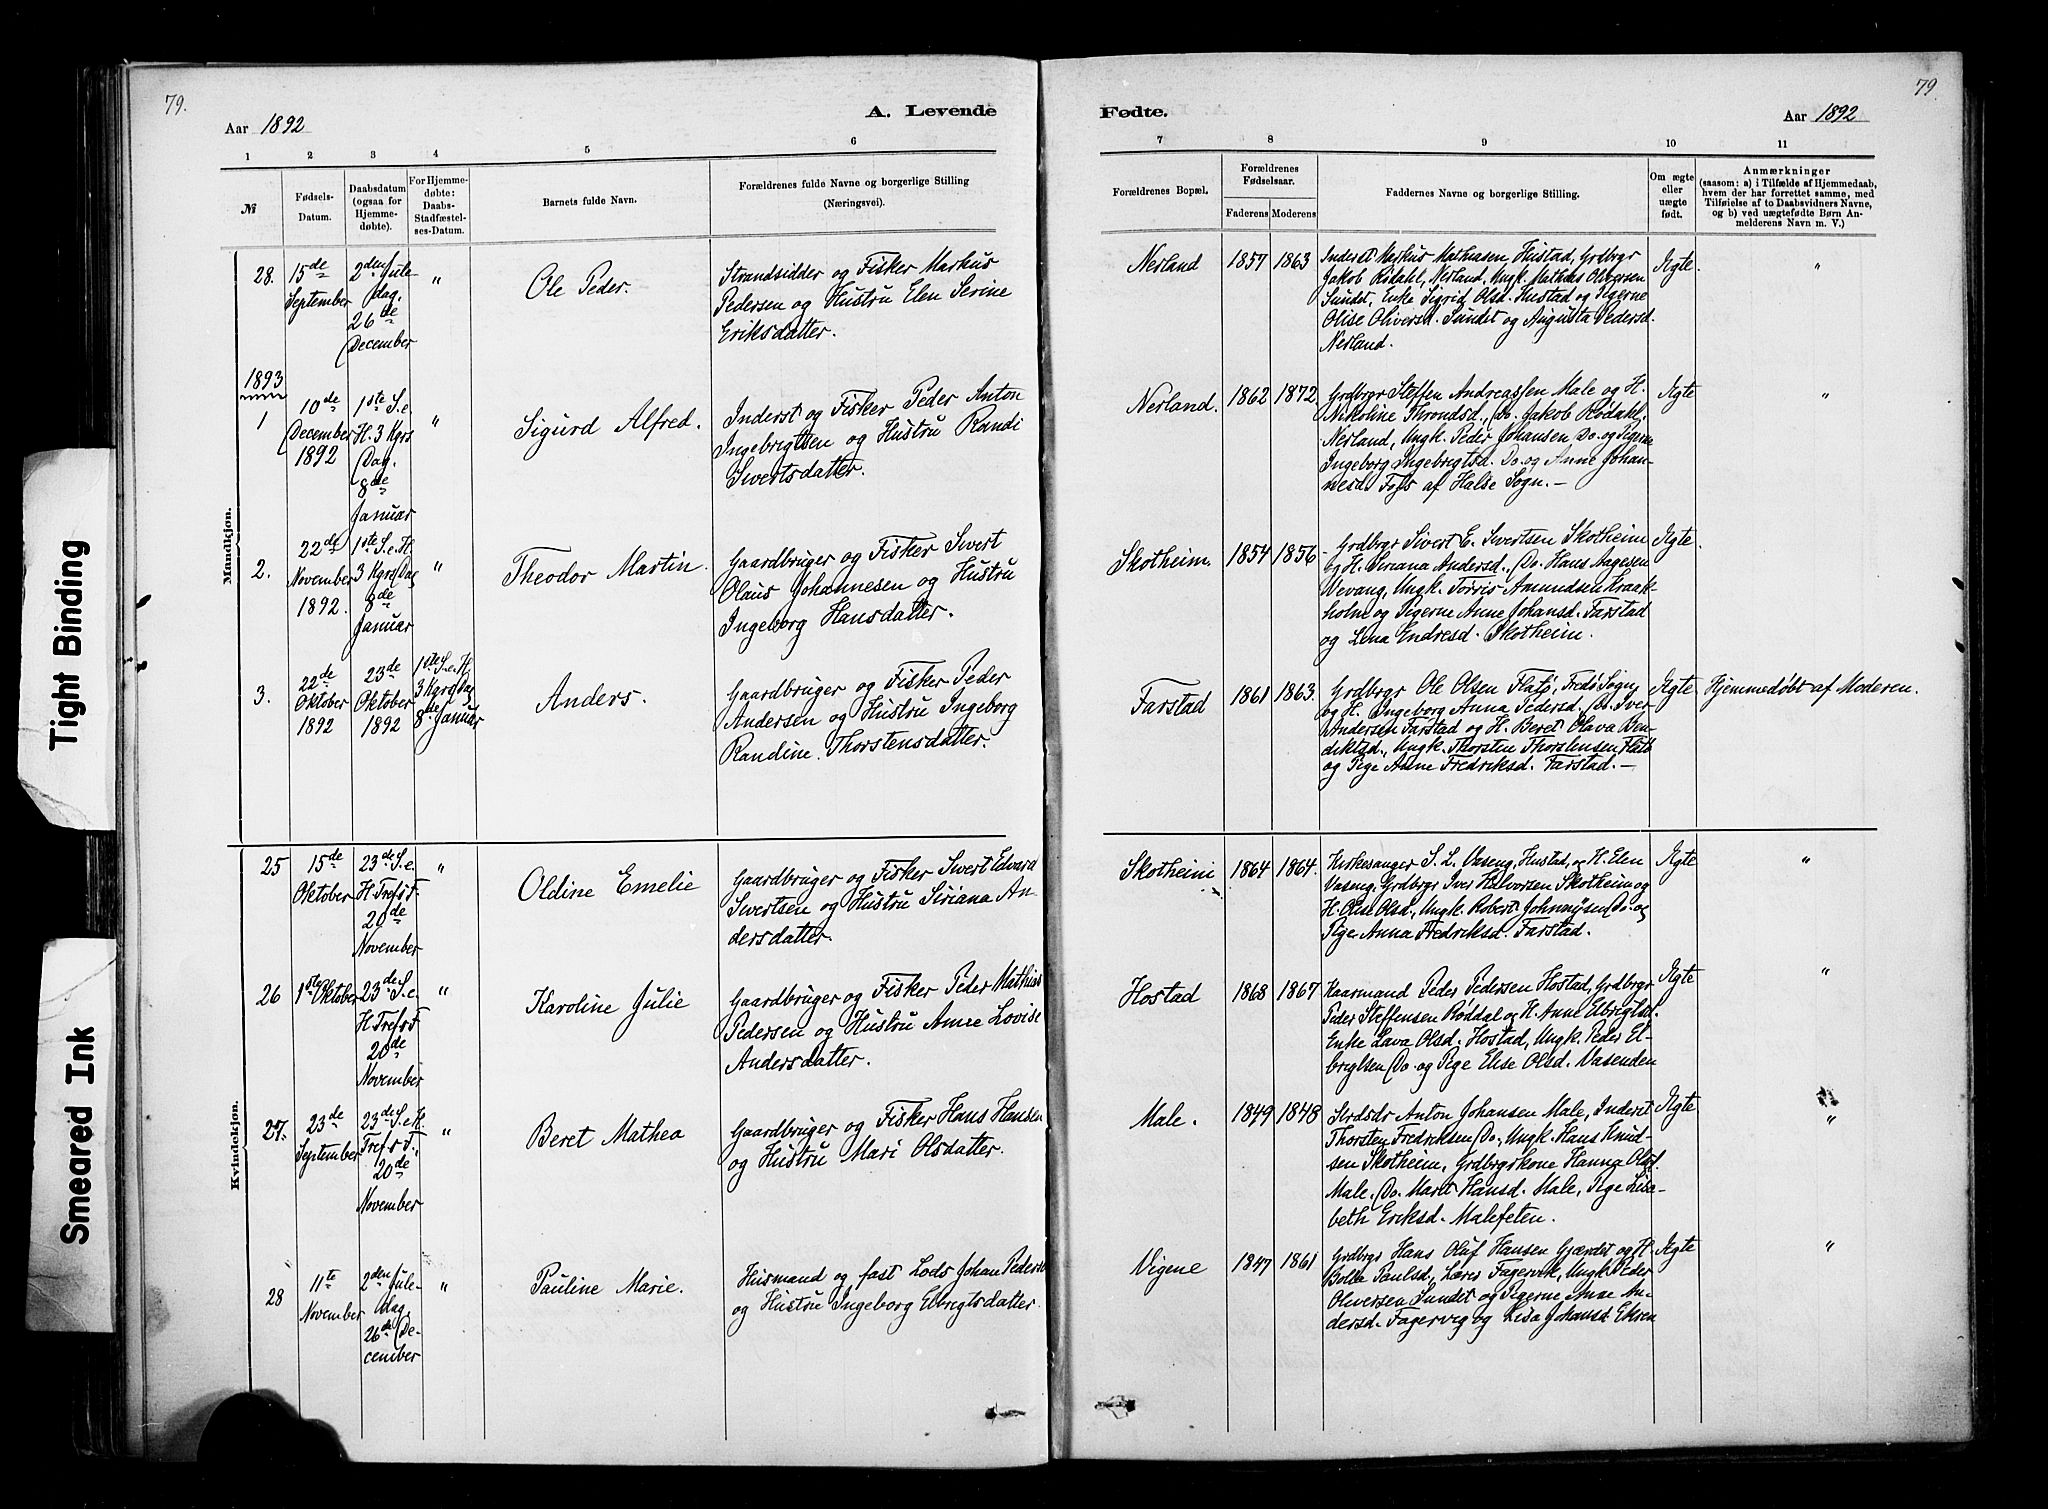 79.
79.
A. Levende
Fødte.
Aar 1892
Aar 1892
1
2
3
4
5
6
7
8
9
10
11
№
Fødsels-
Datum.
Daabsdatum
(ogsaa for
Hjemme-
døbte).
For Hjemme-
døbte:
Daabs-
Stadfæstel-
ses-Datum.
Barnets fulde Navn.
Forældrenes fulde Navne og borgerlige Stilling
(Næringsvei).
Forældrenes Bopæl.
Forældrenes
Fødselsaar.
Faderens
Moderens
Faddernes Navne og borgerlige Stilling.
Om ægte
eller
uægte
født.
Anmærkninger
(saasom: a) i Tilfælde af Hjemmedaab,
hvem der har forrettet samme, med
Tilføielse af to Daabsvidners Navne,
og b) ved uægtefødte Børn An-
melderens Navn m. V.)
Mandkjøn.
28.
15de
September
2den Jule-
dag.
26de
December
"
Ole Peder.
Strandsidder og Fisker Markus
Pedersen og Hustru Elen Serine
Eriksdatter.
Nerland
1857
1863
Inderst Markus Mathiasen, Hustad, Grdbrgr
Jakob Rødahl, Nerland, Ungk. Mathias Oliversen
Sundet, Enke Sigrid Olsd. Hustad og Pigerne
Olise Oliversd. Sundet og Augusta Pedersd.
Nerland.
Ægte.
"
1893
1
10de
December
1892
1ste S. e.
H. 3 Kgrs
Dag.
8de
Januar
"
Sigurd Alfred.
Inderst og Fisker Peder Anton
Ingebrigtsen og Hustru Randi
Sivertsdatter.
Nerland.
1862
1872
Grdbrgr Steffen Andreassen Male og H.
Nikoline Throndsd., Do. Jakob Rødahl,
Nerland, Ungk. Peder Johansen Do. og Pigerne
Ingeborg Ingebrigtsd. Do. og Anne Johan-
nesd. af Halse Sogn. —
Ægte
"
2.
22de
November
1892.
1ste S. e. H.
3 Kgrs Dag
8de
Januar
"
Theodor Martin.
Gaardbruger og Fisker Sivert
Olaus Johannesen og Hustru
Ingeborg Hansdatter.
Skotheim.
1854
1856
Grdbrgr Sivert E. Sivertsen Skotheim
og H. Siriana Andersd., Do. Hans Aagesen
Vevang, Ungk. Tørris Amundsen Kraak-
holm og Pigerne Anne Johansd. Farstad
og Lena Endresd. Skotheim.
Ægte.
3.
22de
Oktober
1892
23de
Oktober
1892
1ste S. e. H.
3 Kgrs Dag
8de Januar
Anders.
Gaardbruger og Fisker Peder
Andersen og Hustru Ingeborg
Randine Thorstensdatter.
Farstad
1861
1863.
Grdbrgr Ole Olsen Flatø, Fredø Sogn,
og H. Ingeborg Anna Pedersd., Do. Iver
Andersen Farstad og H. Beret Olava Ben-
diktsd., Ungk. Thorsten Thorstensen Flatø
og Pige Anne Fredriksd. Farstad. —
Ægte
Hjemmedøbt af Moderen.
Kvindekjøn.
25
15de
Oktober
23de S. e.
H. Tref. s. F.
20de
November
"
Oldine Emelie
Gaardbruger og Fisker Sivert Edvard
Sivertsen og Hustru Siriana An-
dersdatter.
Skotheim
1864
1864.
Kirkesanger S. L. Vaseng, Hustad, og H. Elen
Vaseng, Grdbrgr Iver Halvorsen Skotheim og
H. Olise Olsd., Ungk. Robert Johnnysen Do. og
Pige Anna Fredriksd. Farstad.
Ægte
"
26
1ste Oktober
23de S. e.
H. Tref. s. F.
20de
November
"
Karoline Julie
Gaardbruger og Fisker Peder Mathias
Pedersen og Hustru Anne Lovise
Andersdatter.
Hostad
1868
1867
Kaarmand Peder Pedersen Hostad, Grdbrgr
Peder Steffensen Røddal og H. Anne Elbrigtsd.
Enke Lava Olsd. Hostad, Ungk. Peder El-
brigtsen Do. og Pige Elise Olsd. Vasenden
Ægte
"
27.
23de
September
23de S. e. H.
Tref. s. F.
20de
November
"
Beret Mathea
Gaardbruger og Fisker Hans Hansen
og Hustru Mari Olsdatter.
Male.
1849
1848
Anton Johansen Male, Inderst
Thorsten Fredriksen Do., Ungk. Hans Knud-
sen Skotheim, Grdbrgrkone Hanna Olsd.
Male. Do. Marit Hansd. Male, Pige Lisa-
beth Eriksd. Malefeten.
Ægte
"
28
11te
November
2den Jule-
dag,
26de De-
cember
"
Pauline Marie.
Husmand og fast Lods Johan Pedersen
og Hustru Ingeborg Elbrigtsdatter.
Vigene
1847
1861
Grdbrgr Hans Oluf Hansen Gjærdet og H.
Bolla Paulsd., Lærer Fagervik, Ungk. Peder
Oliversen Sundet og Pigerne Anne An-
dersd. Fagervig og Lisa Johansd. Ekren
Ægte
"
Tight Binding
Smeared Ink